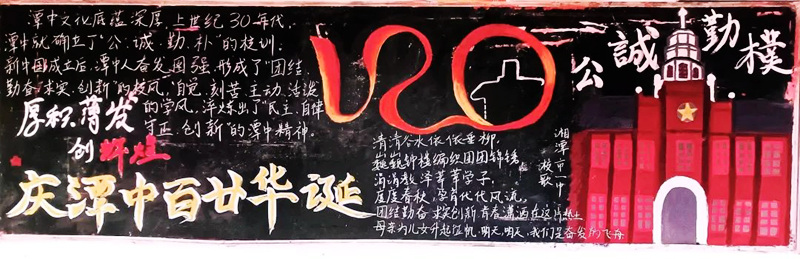 潭中文化底蕴深厚,上世纪30年代,
潭中就确立了“公、诚、勤、朴”的校训。
新中国成立后,潭中人奋发图强,形成了“团结、
勤奋、求实、创新”的校风,“自觉、刻苦、主动、活泼”
的学风,淬炼出了“民主、自律、
守正、创新”的潭中精神。
厚积薄发
创辉煌
庆潭中百廿华诞
120
公誠勤樸
湘潭市一中
校歌
清清谷水依依垂柳,
巍巍钟楼编织团团锦绣,
涓涓教泽菁菁学子,
度度春秋,孕育代代风流。
团结勤奋 求实创新 青春潇洒在这片热土
母亲为儿女升起征帆,明天,明天,我们是奋发的飞舟